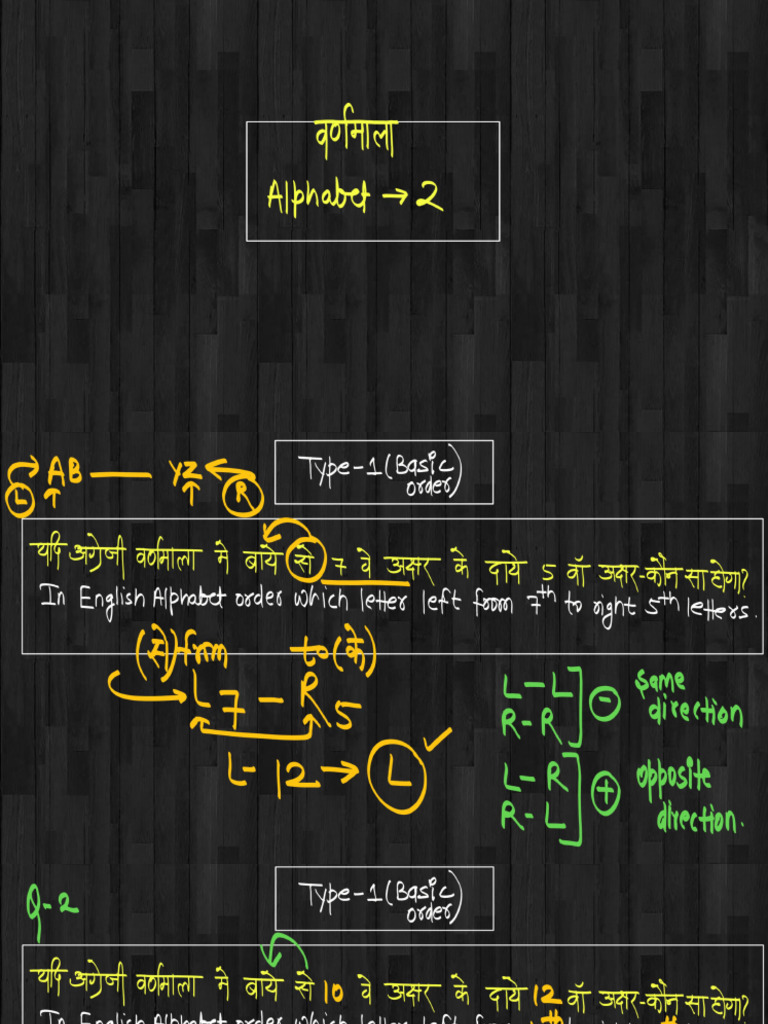 वर्णमाला
Alphabet → 2
Type-1 (Basic order)
L AB — YZ R
यदि अंग्रेजी वर्णमाला मे बाये से 7 वे अक्षर के दाये 5 वाँ अक्षर-कौन सा होगा?
In English Alphabet order which letter left from 7th to right 5th letters.
(से) from to (के)
L 7 - R 5
L- 12 → L ✓
L-L
R-R
- same direction
L-R
R-L
+ opposite direction.
Q-2
Type-1 (Basic order)
यदि अंग्रेजी वर्णमाला मे बाये से 10 वे अक्षर के दाये 12 वाँ अक्षर-कौन सा होगा?
In English Alphabet order which letter left from